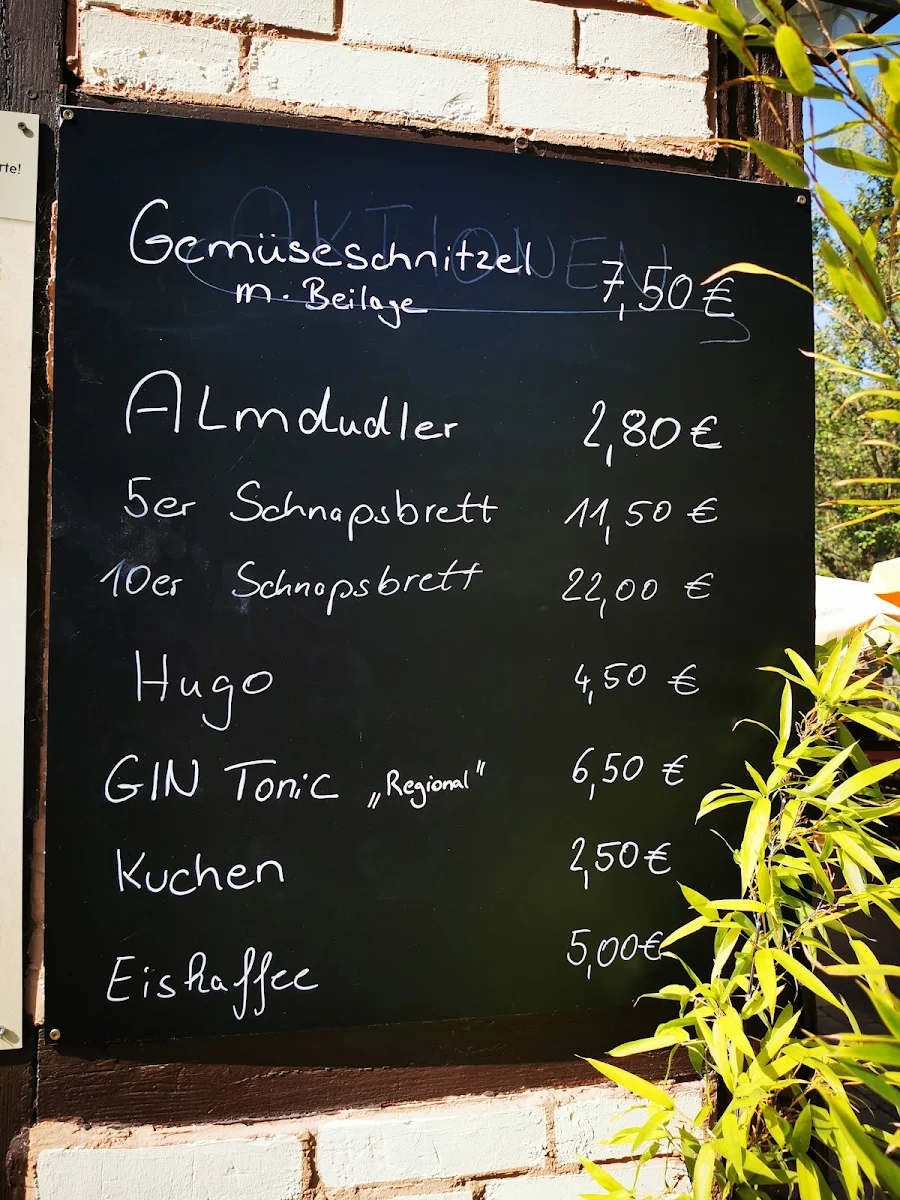 rte!
AKTIONEN
Gemüseschnitzel 7,50 €
m. Beilage
Almdudler 2,80 €
5er Schnapsbrett 11,50 €
10er Schnapsbrett 22,00 €
Hugo 4,50 €
GIN Tonic „Regional" 6,50 €
Kuchen 2,50 €
Eiskaffee 5,00 €